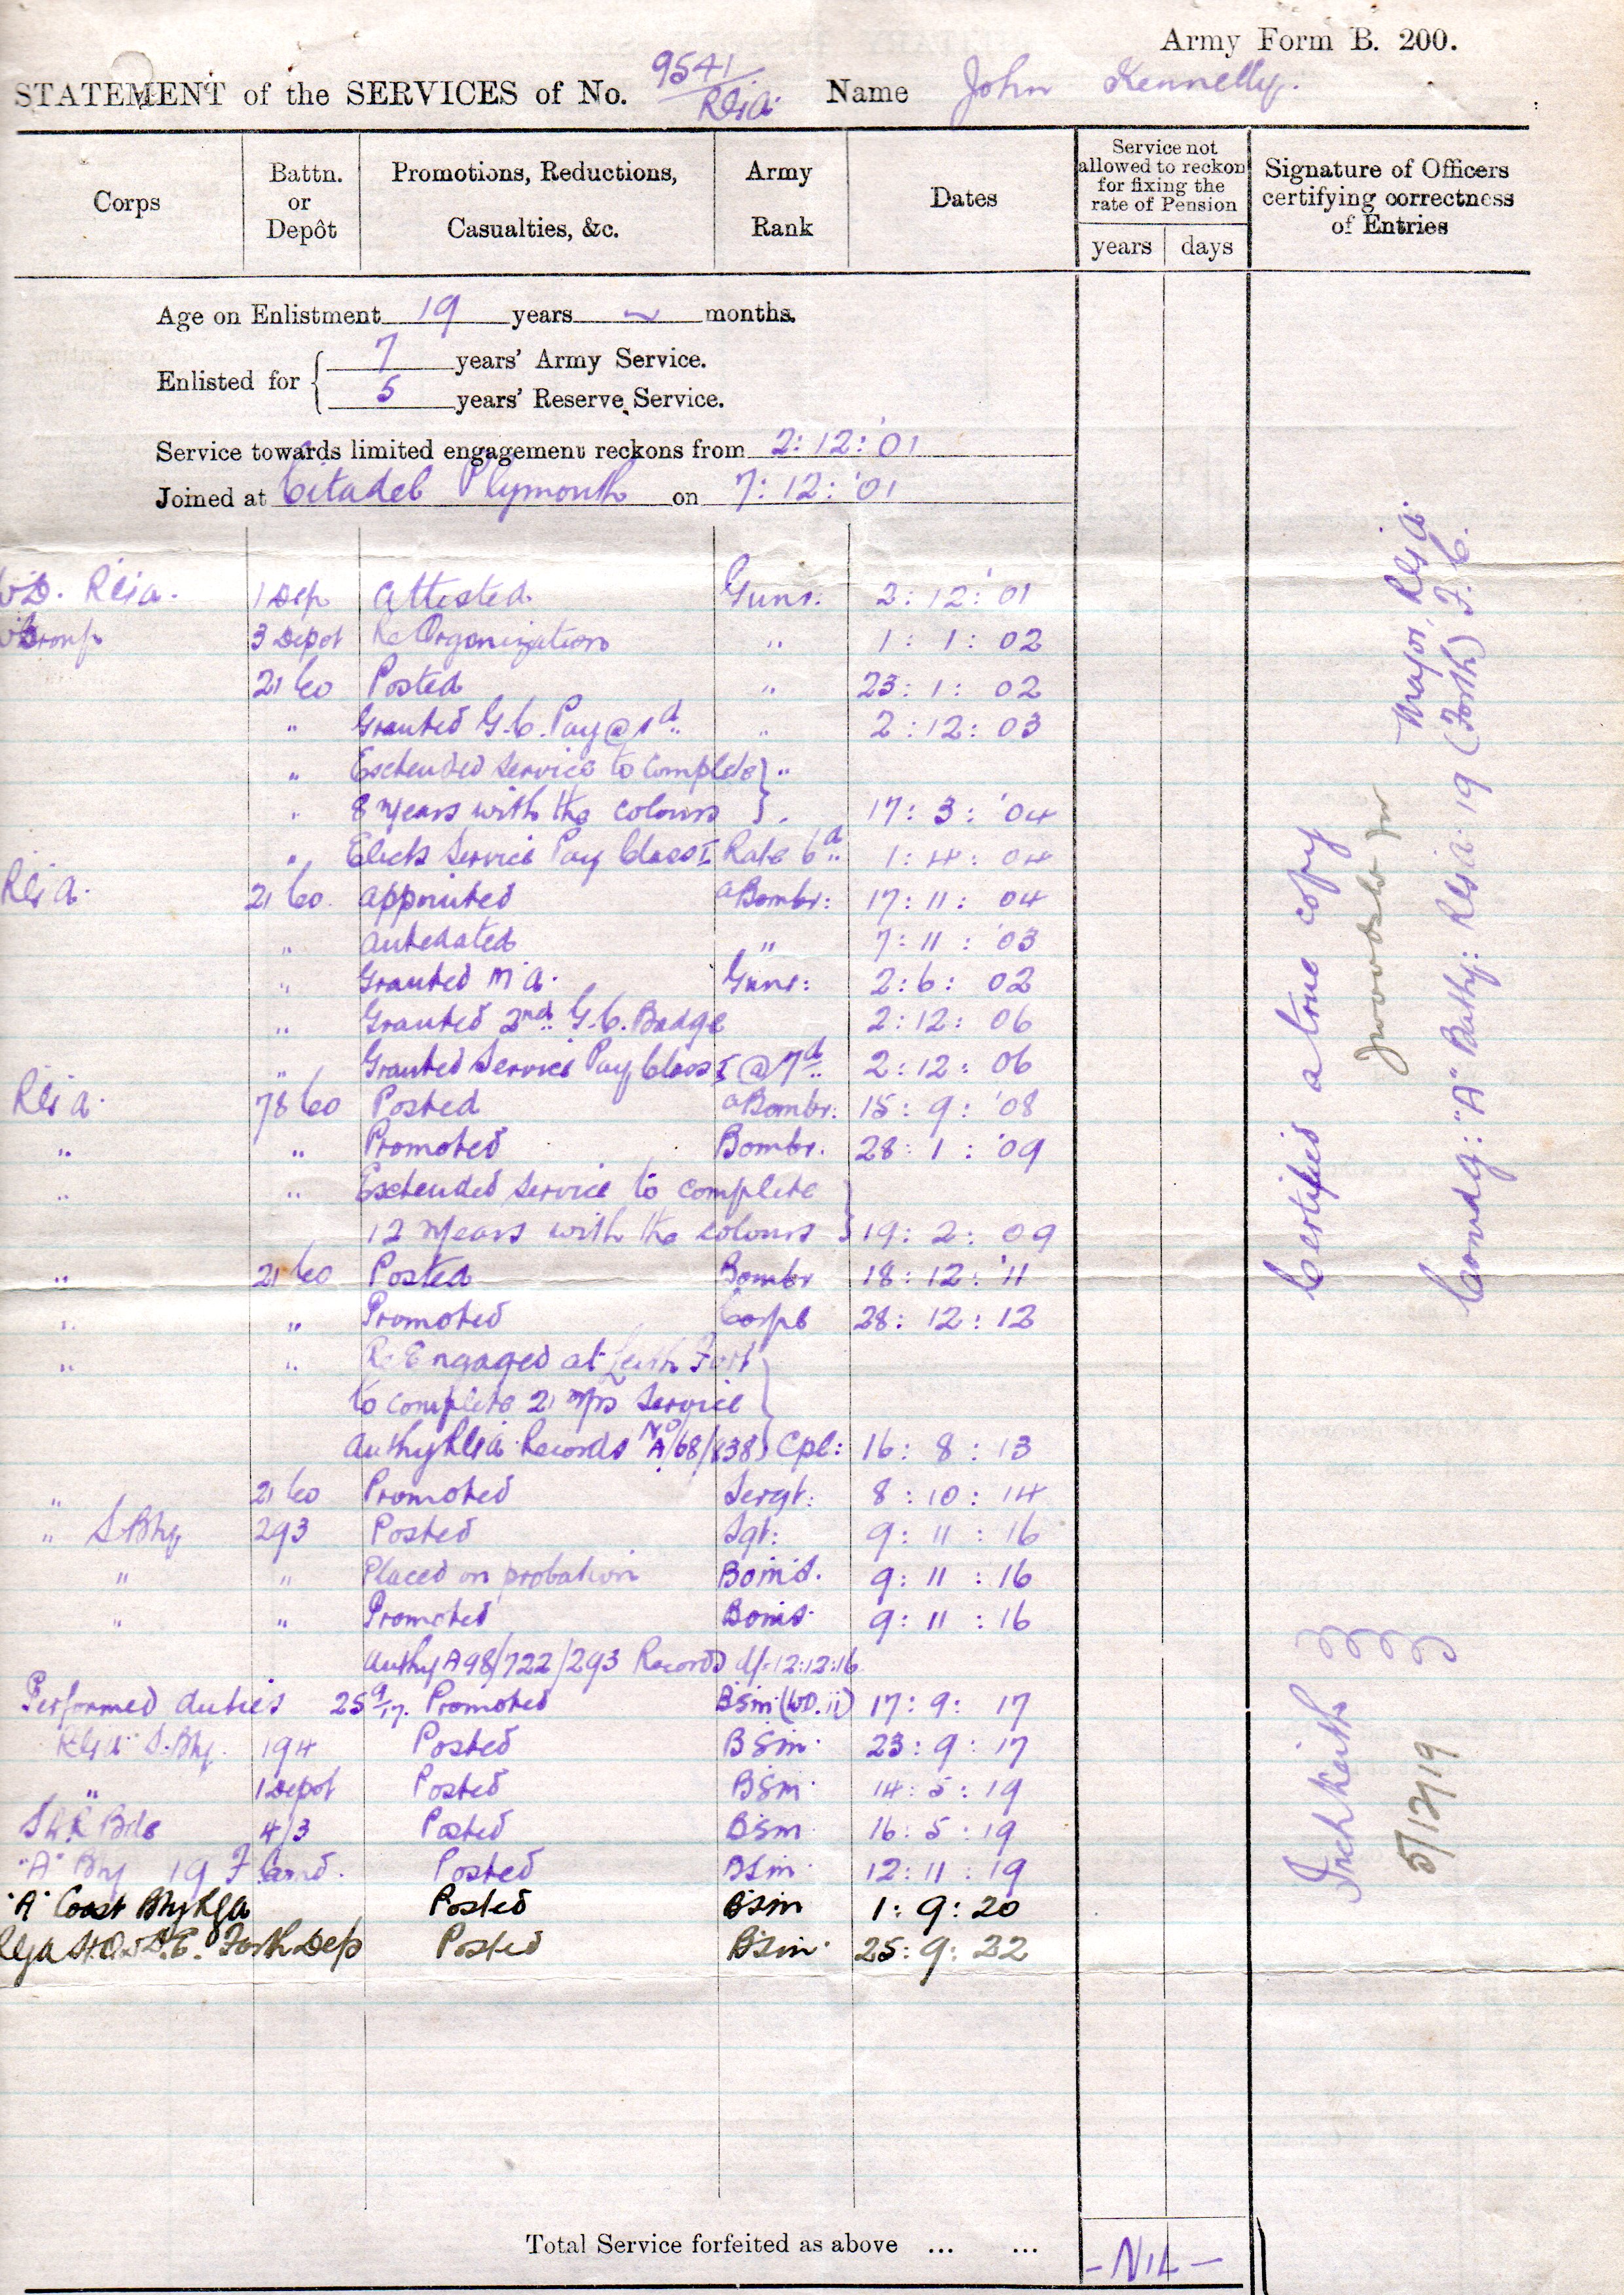 Army Form B. 200.
STATEMENT of the SERVICES of No. 9541/RGA. Name John Kennelly.
Corps
Battn. or Depôt
Promotions, Reductions, Casualties, &c.
Army Rank
Dates
Service not allowed to reckon for fixing the rate of Pension
years days
Signature of Officers certifying correctness of Entries
Age on Enlistment 19 years ~ months.
Enlisted for { 7 years' Army Service.
5 years' Reserve Service.
Service towards limited engagement reckons from 2:12:'01
Joined at Citadel Plymouth on 7:12:'01
WD. RGA. 1 Dep Attested Gunr. 2:12:'01
Group 3 Depot Re Organization " 1:1:02
21 Co Posted " 23:1:02
" Granted G.C. Pay @ 1d " 2:12:03
" Extended Service to complete } "
" 8 years with the colours } 17:3:'04
" Elects Service Pay Class I Rate 6d 1:4:04
RGA. 21 Co. appointed a Bombr: 17:11:04
" antedated " 7:11:'03
" Granted M.A. Gunr: 2:6:02
" Granted 2nd G.C. Badge 2:12:06
" Granted Service Pay Class I @ 7d 2:12:06
RGA. 78 Co Posted a Bombr: 15:9:'08
" " Promoted Bombr. 28:1:'09
" " Extended Service to complete }
12 years with the colours } 19:2:09
" 21 Co Posted Bombr 18:12:'11
" " Promoted Corpl 28:12:12
" " Re Engaged at Leith Fort }
to complete 21 yrs Service }
Authy RGA Records No A/68/838) Cpl: 16:8:13
" 21 Co Promoted Sergt: 8:10:14
" S.Bty 293 Posted Sgt: 9:11:16
" " Placed on probation 9:11:16
" " Promoted 9:11:16
Authy A98/722/293 Records d/-12:12:16
Performed duties 25 9/17. Promoted BSM (WO.ii) 17:9:17
RGA S.Bty. 194 Posted BSM. 23:9:17
" 1 Depot Posted BSM. 14:5:19
Bde 4/3 Posted BSM. 16:5:19
"A" Bty 19 F Comd. Posted BSM. 12:11:19
"A" Coast Bty RGA Posted BSM 1:9:20
RGA Forth Dep Posted BSM. 25:9:22
Total Service forfeited as above ... ... -NIL-
Certified a true copy
for Major, RGA.
Comdg: "A" Batty: RGA. 19 (Forth) F.C.
Inchkeith
5/12/19